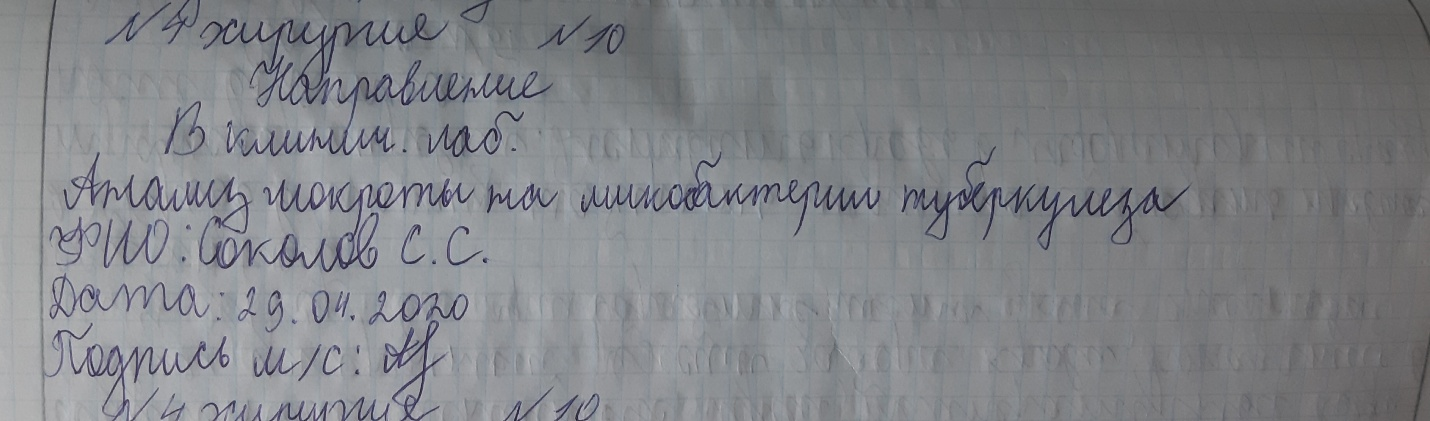 N4 хирургия N10
Направление
В клинич. лаб.
Анализ мокроты на микобактерии туберкулеза
ФИО: Соколов С. С.
Дата: 29.04.2020
Подпись м/с:
N4 хирургия N10